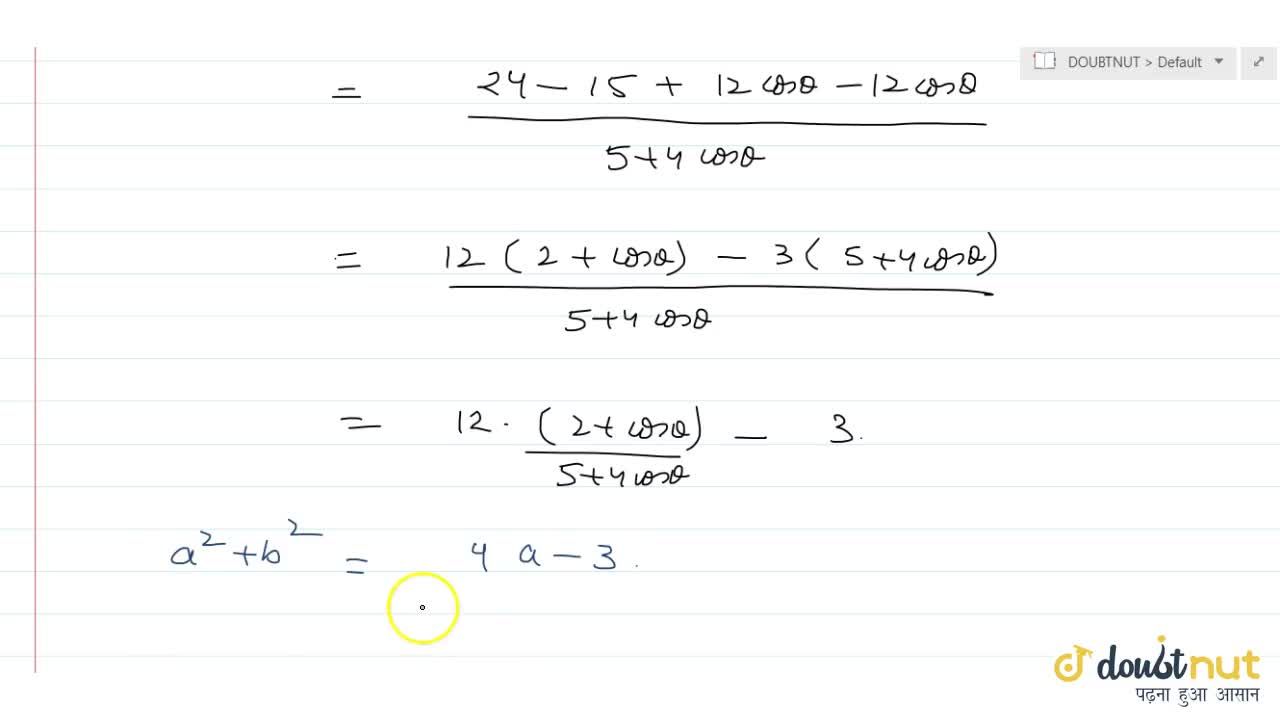 DOUBTNUT > Default
= 24 - 15 + 12 cosθ - 12 cosθ
5+4 cosθ
= 12 ( 2 + cosθ) - 3 ( 5+4 cosθ)
5+4 cosθ
= 12 . (2+ cosθ) - 3.
5+4 cosθ
a² + b² = 4 a - 3.
doubtnut
पढ़ना हुआ आसान